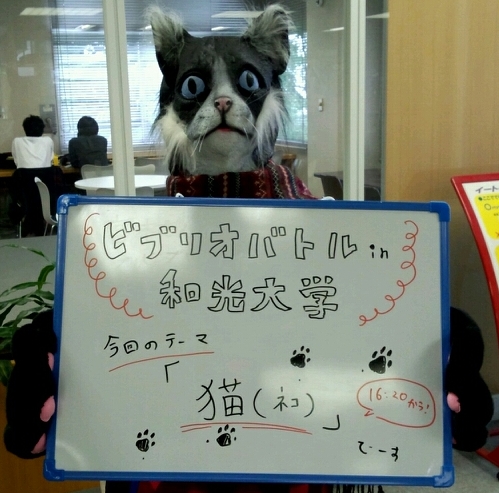 ビブリオバトル in
和光大学
今回のテーマ
「猫(ネコ)」
16:20から!
でーす
イート